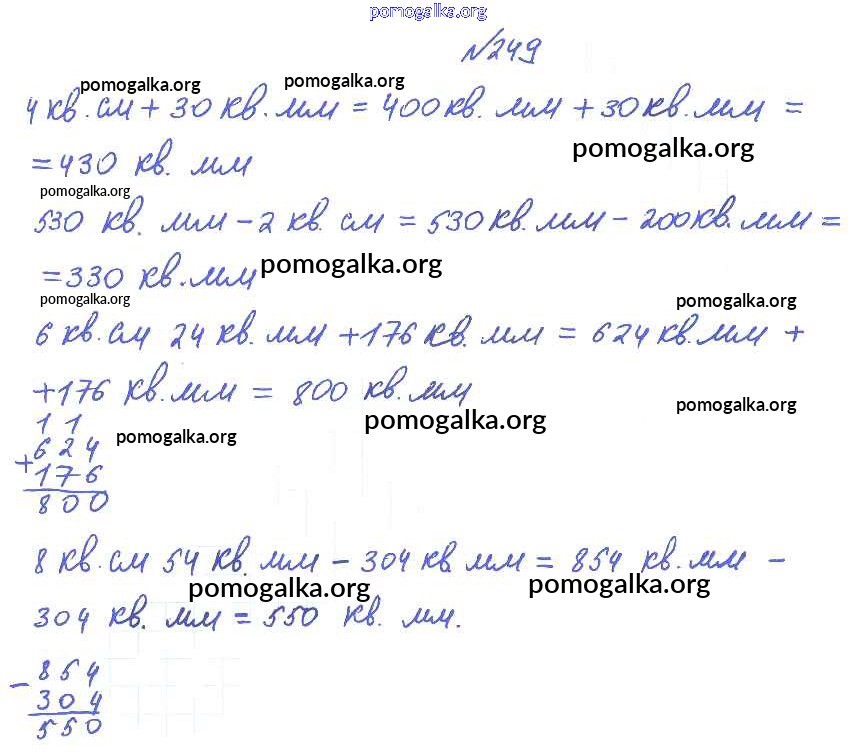 pomogalka.org
№249
pomogalka.org pomogalka.org
4 кв. см + 30 кв. мм = 400 кв. мм + 30 кв. мм =
pomogalka.org
= 430 кв. мм
pomogalka.org
530 кв. мм - 2 кв. см = 530 кв. мм - 200 кв. мм =
= 330 кв. мм pomogalka.org
pomogalka.org pomogalka.org
6 кв. см 24 кв. мм + 176 кв. мм = 624 кв. мм +
+ 176 кв. мм = 800 кв. мм
pomogalka.org
1 1 pomogalka.org
pomogalka.org
624
+
176
800
8 кв. см 54 кв. мм - 304 кв мм = 854 кв. мм -
pomogalka.org pomogalka.org
304 кв. мм = 550 кв. мм.
854
-
304
550